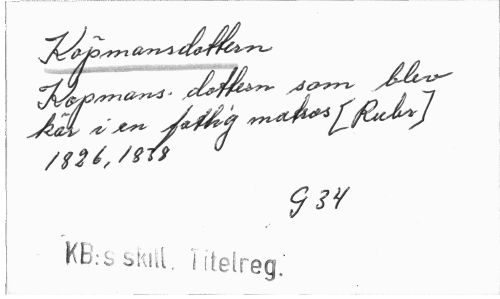 Köpmansdottern
Köpmans-dottern som blev
kär i en fattig matros [Rubr]
1826, 1838
G 34
KB:s skill. Titelreg.